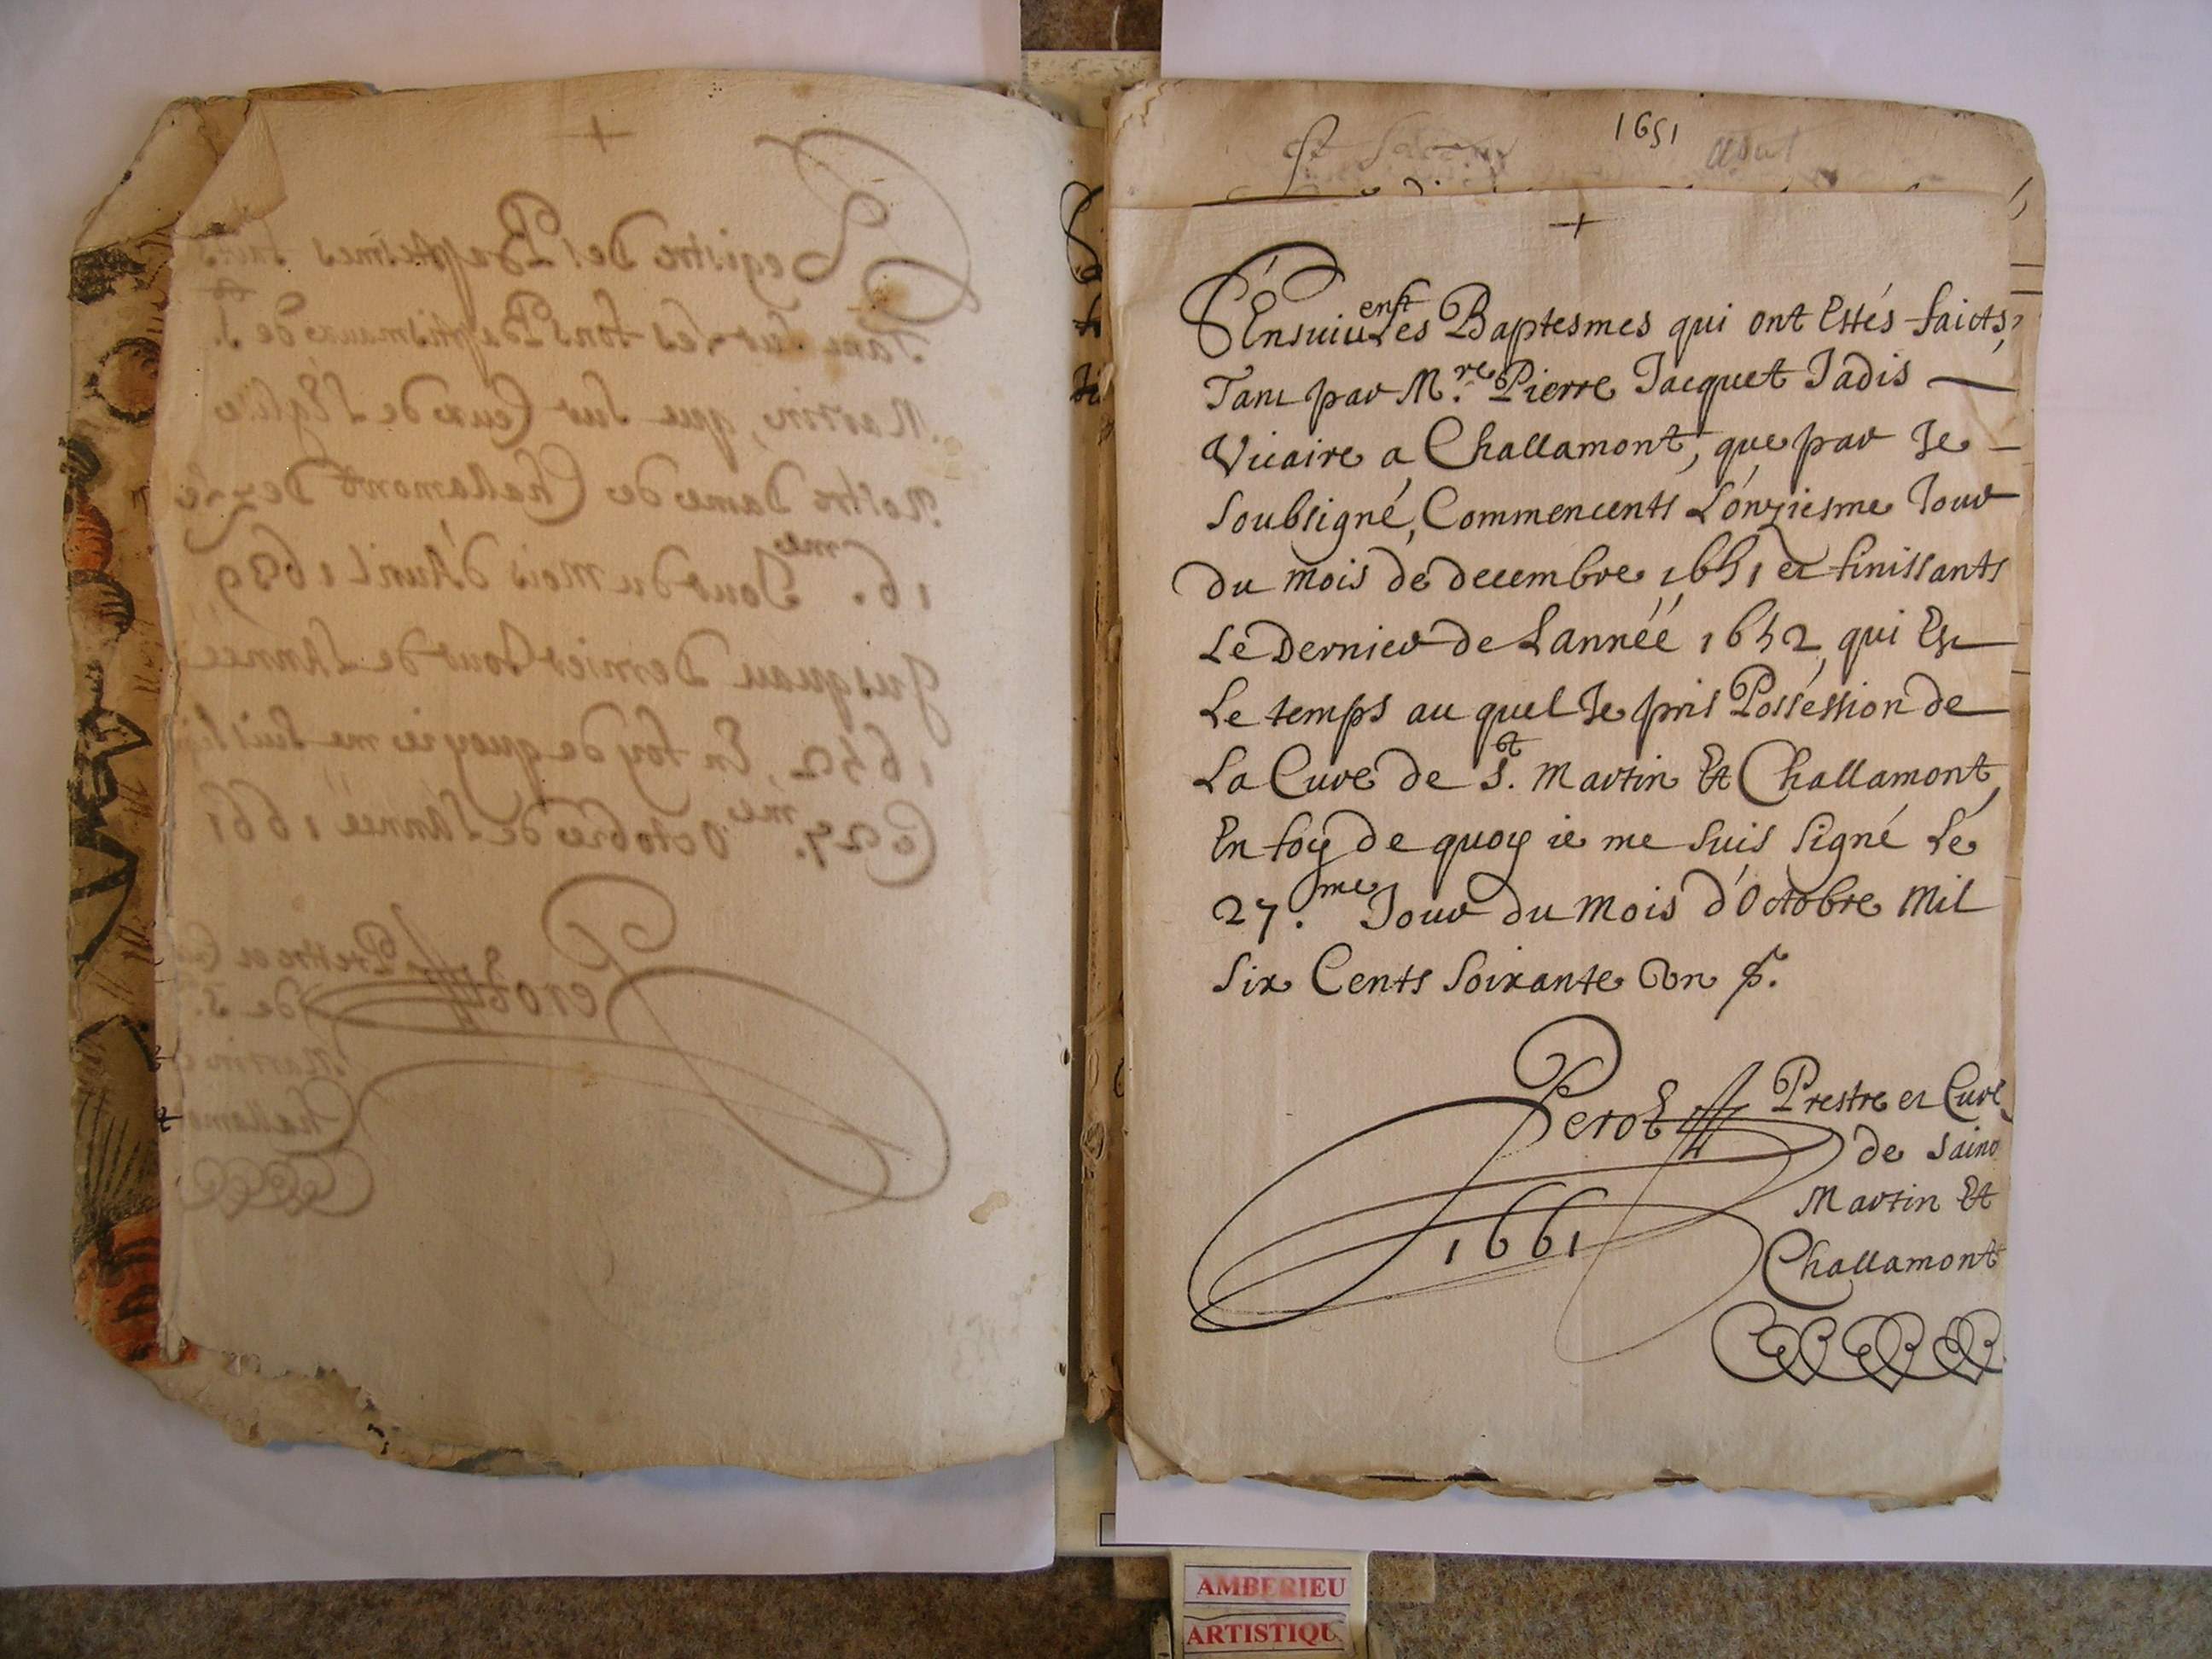 Registre Des Baptesmes faicts
Tant sur les fons Baptismaux de S.t
Martin, que sur Ceux de L'Eglise
Nostre Dame de Challamont Dez le
16.me Jour du mois d'Auril 1639
Jusquau Dernier Jour de L'Année
1652, En foy de quoy ie me suis signé
Ce 27.me Octobre de L'Année 1661
Perot Prestre et Curé
de S.t
Martin et
Challamont
1651
+
S'Ensuiuenst Les Baptesmes qui ont Estés faicts,
Tant par M.re Pierre Jacquet Jadis —
Vicaire a Challamont, que par Je —
Soubsigné, Commencents L'onziesme Jour
du mois de decembre 1651 et finissants
Le Dernier de Lannéé 1652, qui Est
Le temps au quel Je pris Possession de
La Cure de S.t Martin Et Challamont,
En foy de quoy ie me suis signé Le
27.me Jour du mois d'Octobre mil
Six Cents Soixante Vn
Perot Prestre et Curé
de Sainct
Martin Et
Challamont
1661
AMBERIEU
ARTISTIQU